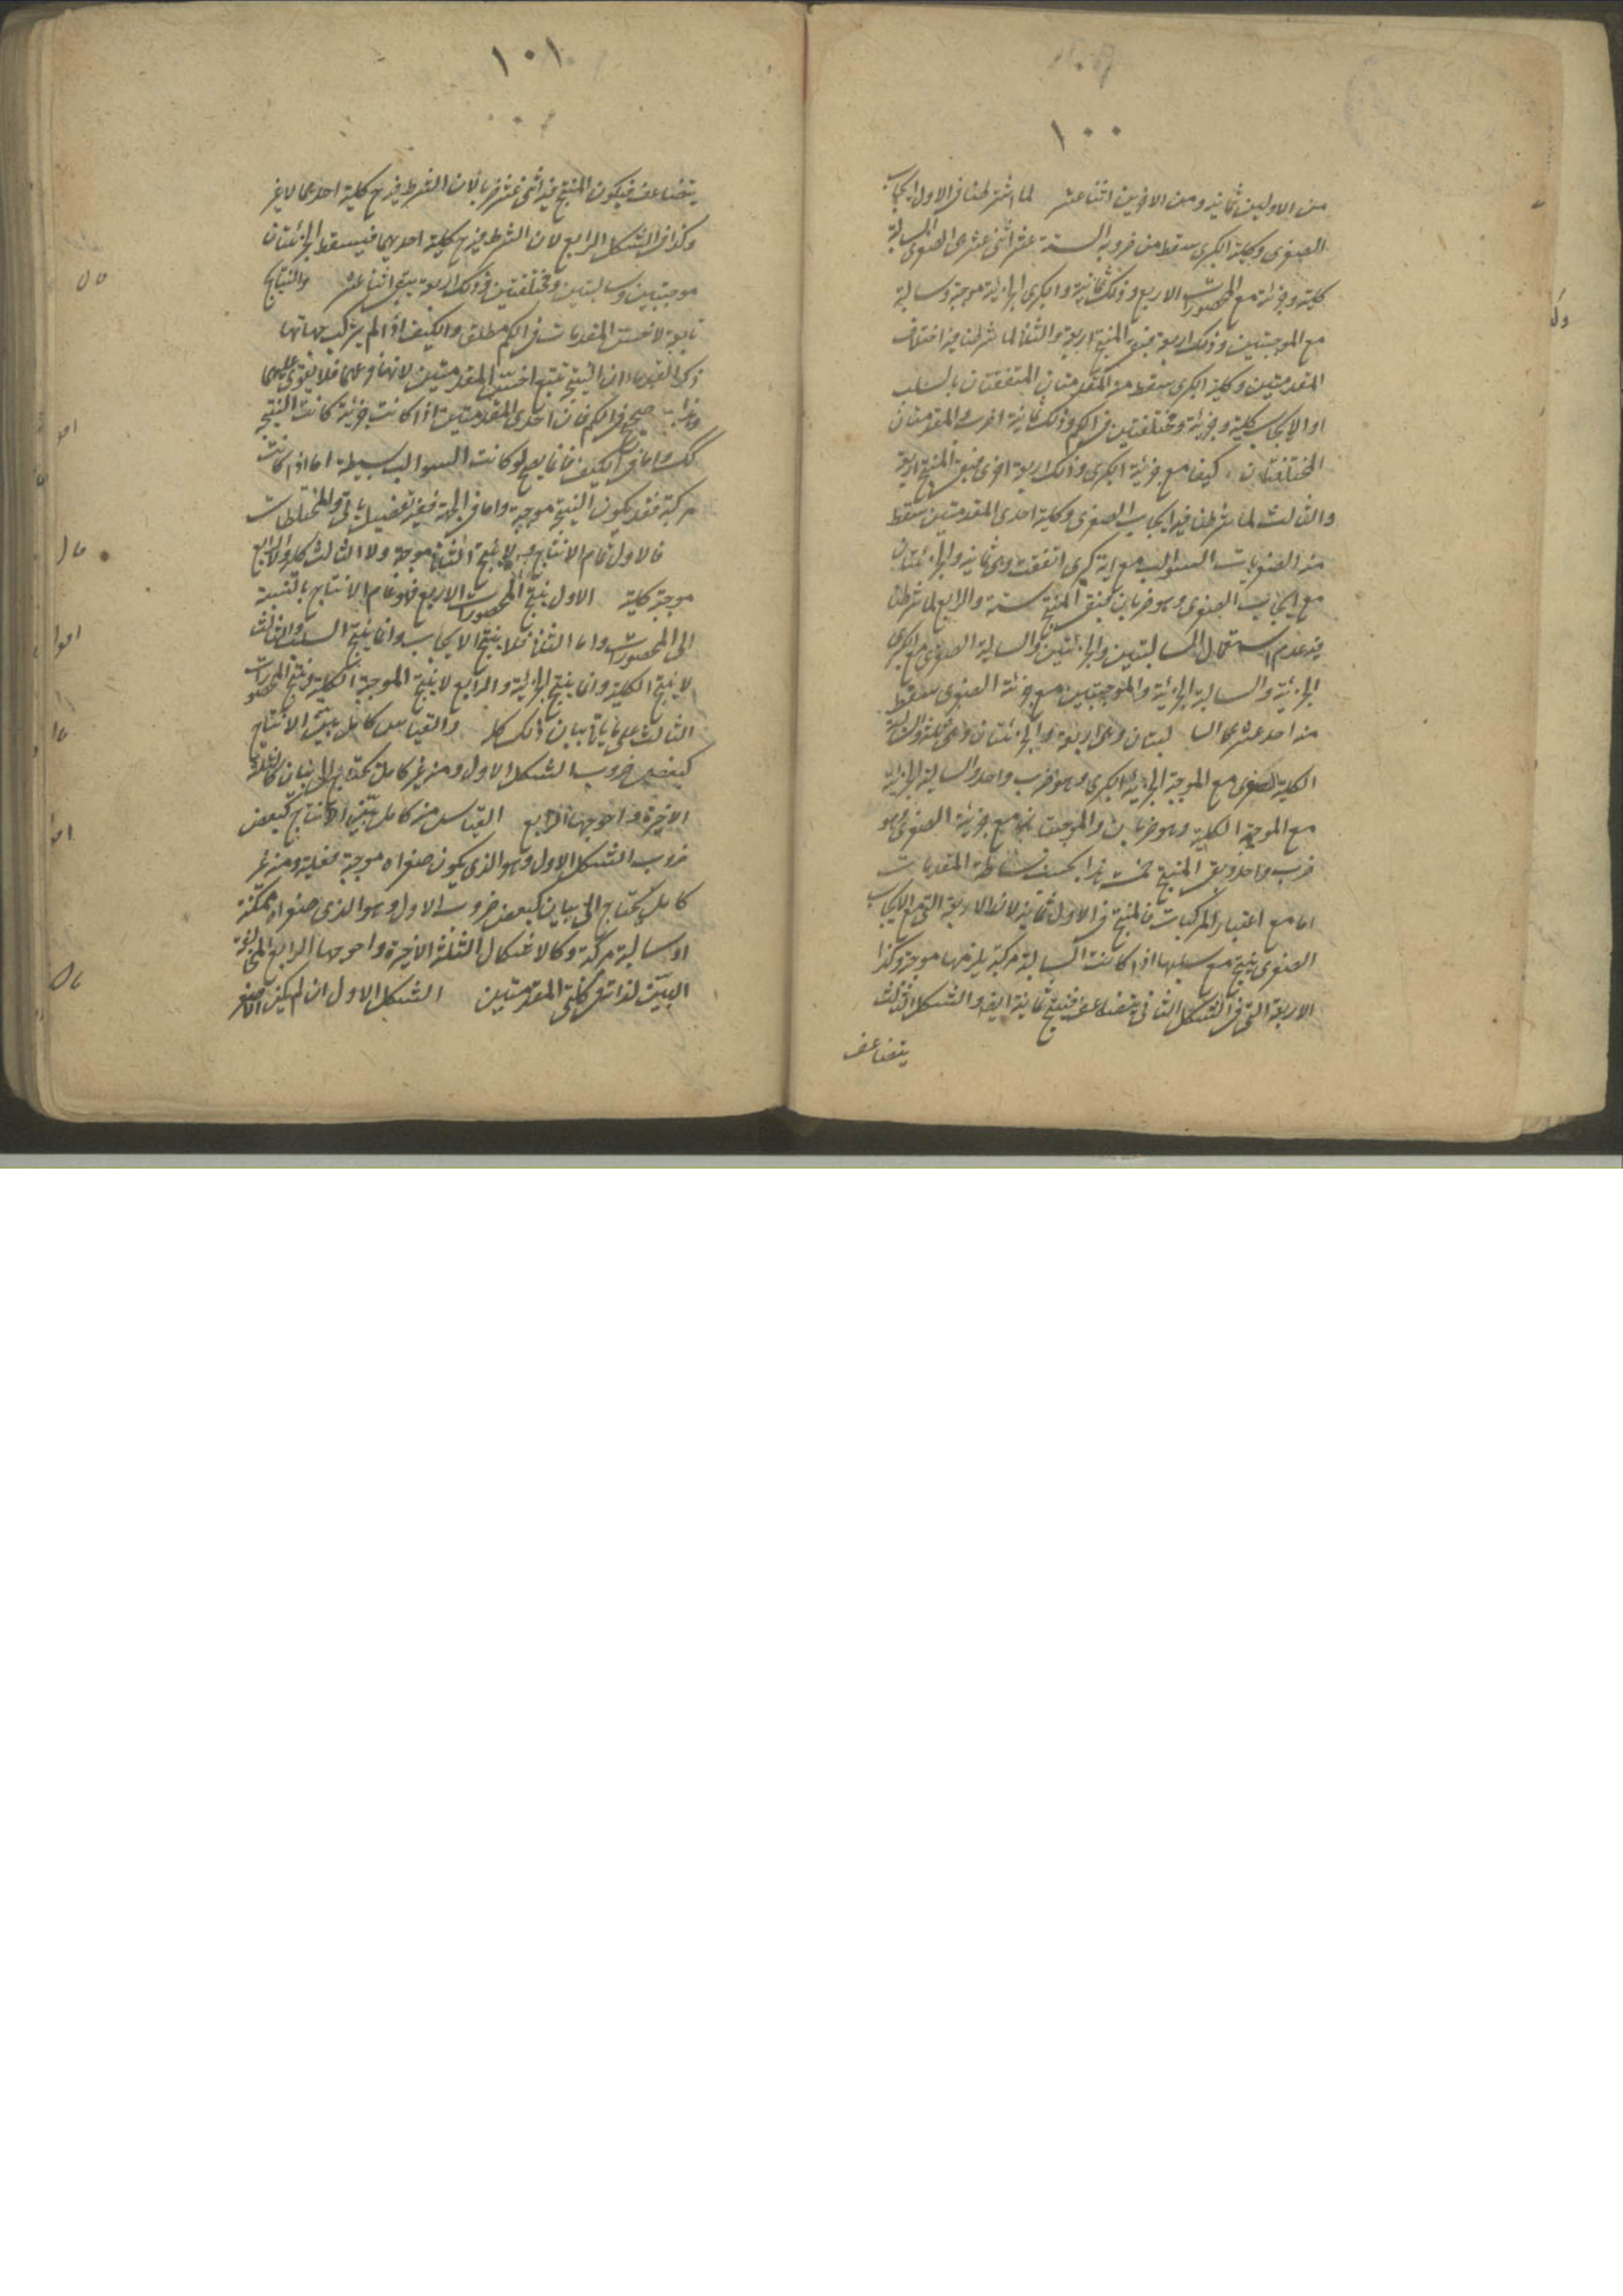 ١٠٠
من الاولين ثمانية ومن الاخرين اثنا عشر لما اشترطنا في الاول ايجاب
الصغرى وكلية الكبرى سقط من ضروبه الستة عشر اثنى عشر هي الصغرى السالبة
كلية وجزئية مع المحصورات الاربع وذلك ثمانية والكبرى الجزئية موجبة وسالبة
مع الموجبتين وذلك اربعة فبقي المنتج اربعة والثاني لما شرطنا فيه اختلاف
المقدمتين وكلية الكبرى سقط منه المقدمتان المتفقتان بالسلب
او الايجاب كلية وجزئية ومختلفتين في الكم وذلك ثمانية اضرب والمقدمتان
المختلفتان كيفا مع جزئية الكبرى وذلك اربعة اخرى فبقي المنتج اربعة
والثالث لما شرطنا فيه ايجاب الصغرى وكلية احدى المقدمتين سقط
منه الصغريات السوالب مع اية كبرى اتفقت وهي ثمانية والجزئيتان
مع ايجاب الصغرى وهو ضربان فبقي المنتج ستة والرابع لما شرطنا
فيه عدم استعمال السالبتين والجزئيتين والسالبة الصغرى مع الكبرى
الجزئية والسالبة الجزئية والموجبتين مع جزئية الصغرى سقط
منه احد عشر هي السا لبتان وهي اربعة والجزئيتان وهي ثلثة والسالبة
الكلية الصغرى مع الموجبة الجزئية الكبرى وهو ضرب واحد والسالبة الجزئية
مع الموجبة الكلية وهو ضربان والموجبتان مع جزئية الصغرى وهو
ضرب واحد وبقي المنتج خمسة هذا بحسب بساطة المقدمات
اما مع اعتبار المركبات فالمنتج في الاول ثمانية لان الاربعة التي مع ايجاب
الصغرى ينتج مع سلبها اذا كانت السالبة مركبة يلزمها موجبة وكذا
الاربعة التي في الشكل الثاني يتضاعف فينتج ثمانية ايضا والشكل الثالث
يتضاعف
١٠١
يتضاعف فيكون المنتج فيه اثنى عشر ضربا لان الشرط فيه ح كلية احدهما لا غير
وكذا في الشكل الرابع لان الشرط فيه ح كلية احديهما فيسقط الجزئيتان
موجبتين وسالبتين ومختلفتين وذلك اربعة يبقى اثنا عشر والنتايج
تابعة لاخس المقدمات في الكم مطلق والكيف اذا لم يتركب جهاتها
ذكر القدماء ان النتيجة تتبع اخس المقدمتين لانها فرعهما فلا يقوى عليهما
وهذا صحيح في الكم فان احدى المقدمتين اذا كانت جزئية كانت النتيجة
كك واما في الكيف فانما يصح لو كانت السوالب بسيطة اما اذا كانت
مركبة فقد يكون النتيجة موجبة واما في الجهة ففيه تفصيل ياتي والمختلطات
فالاول تام الانتاج ولا ينتج الثاني موجبة ولا الثالث كلية ولا الرابع
موجبة كلية الاول ينتج المحصورات الاربع فهو تام الانتاج بالنسبة
الى المحصورات واما الثاني فلا ينتج الايجاب وانما ينتج السلب والثالث
لا ينتج الكلية وانما ينتج الجزئية والرابع لا ينتج الموجبة الكلية وينتج المحصورات
الثالث على ما ياتي بيان ذلك كله والقياس كامل بين الانتاج
كبعض ضروب الشكل الاول ومنه غير كامل يحتاج الى بيان كالثلثة
الاخيرة واحوجها الرابع القياس منه كامل بين الانتاج كبعض
ضروب الشكل الاول وهو الذي يكون صغراه موجبة فعلية ومنه غير
كامل يحتاج الى بيان كبعض ضروب الاول وهو الذي صغراه ممكنة
او سالبة مركبة وكالاشكال الثلثة الاخيرة واحوجها الرابع لمخالفة
البين لذاته في كلتي المقدمتين الشكل الاول ان لم يكن الاصغر